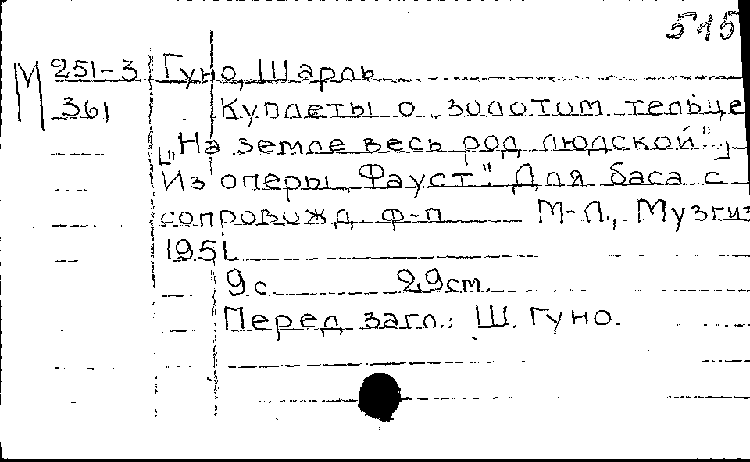 515
М 251-3 Гуно, Шарль
361 Куплеты о золотом тельце
[„На земле весь род людской"]
Из оперы „Фауст". Для баса с
сопровожд ф-п М-Л., Музгиз
1951.
9 с. 29 cm.
Перед загл.: Ш. Гуно.